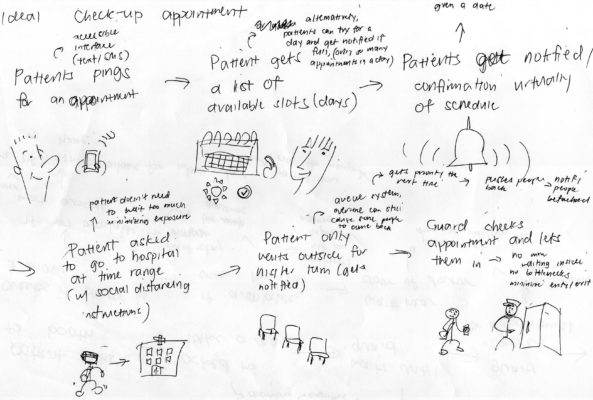 Ideal check-up appointment
accessible
interface
(text/sms)
Patients pings
for an appointment
alternatively,
patients can try for a
day and get notified if
full, (only so many
appointments in a day)
Patient gets
a list of
available slots (days)
given a date
Patients get notified/
confirmation virtually
of schedule
patient doesn't need
to wait too much
minimizing exposure
Patient asked
to go to hospital
at time range
(w/ social distancing
instructions)
queue system,
overtime can still
cause some people
to come back
gets priority the
next time
pushes people
back
notify
people
beforehand
Patient only
waits outside for
his/her turn (gets
notified)
Guard checks
appointment and lets
them in
no more
waiting inside
no bottlenecks
minimize entry/exit